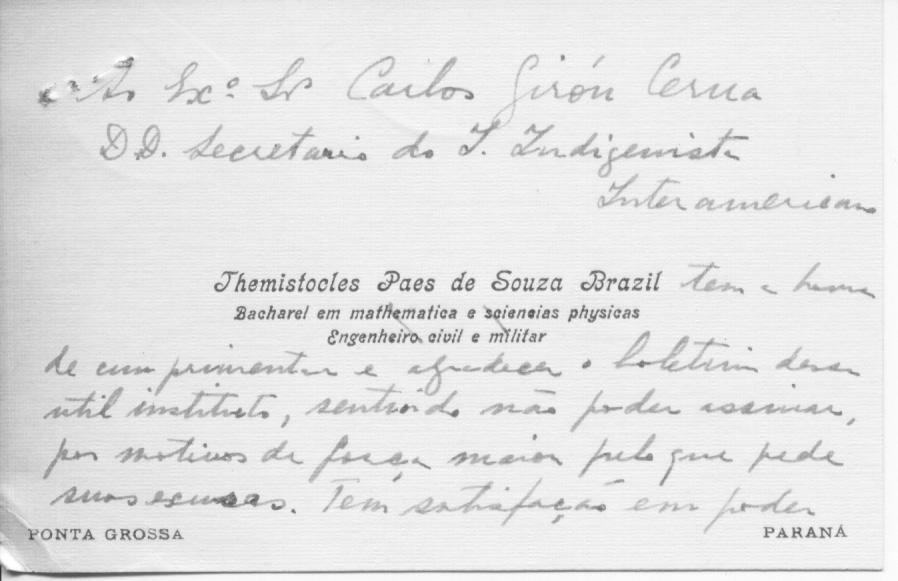 Ao Exº Sr Carlos Girón Cerna
D.D. Secretario do I. Indigenista
Interamericano
Themistocles Paes de Souza Brazil tem a honra
Bacharel em mathematica e sciencias physicas
Engenheiro civil e militar
de cumprimentar e agradecer o boletim desse
util instituto, sentindo não poder assinar,
por motivos de força maior pelo que pede
suas excusas. Tem satisfação em poder
PONTA GROSSA PARANÁ